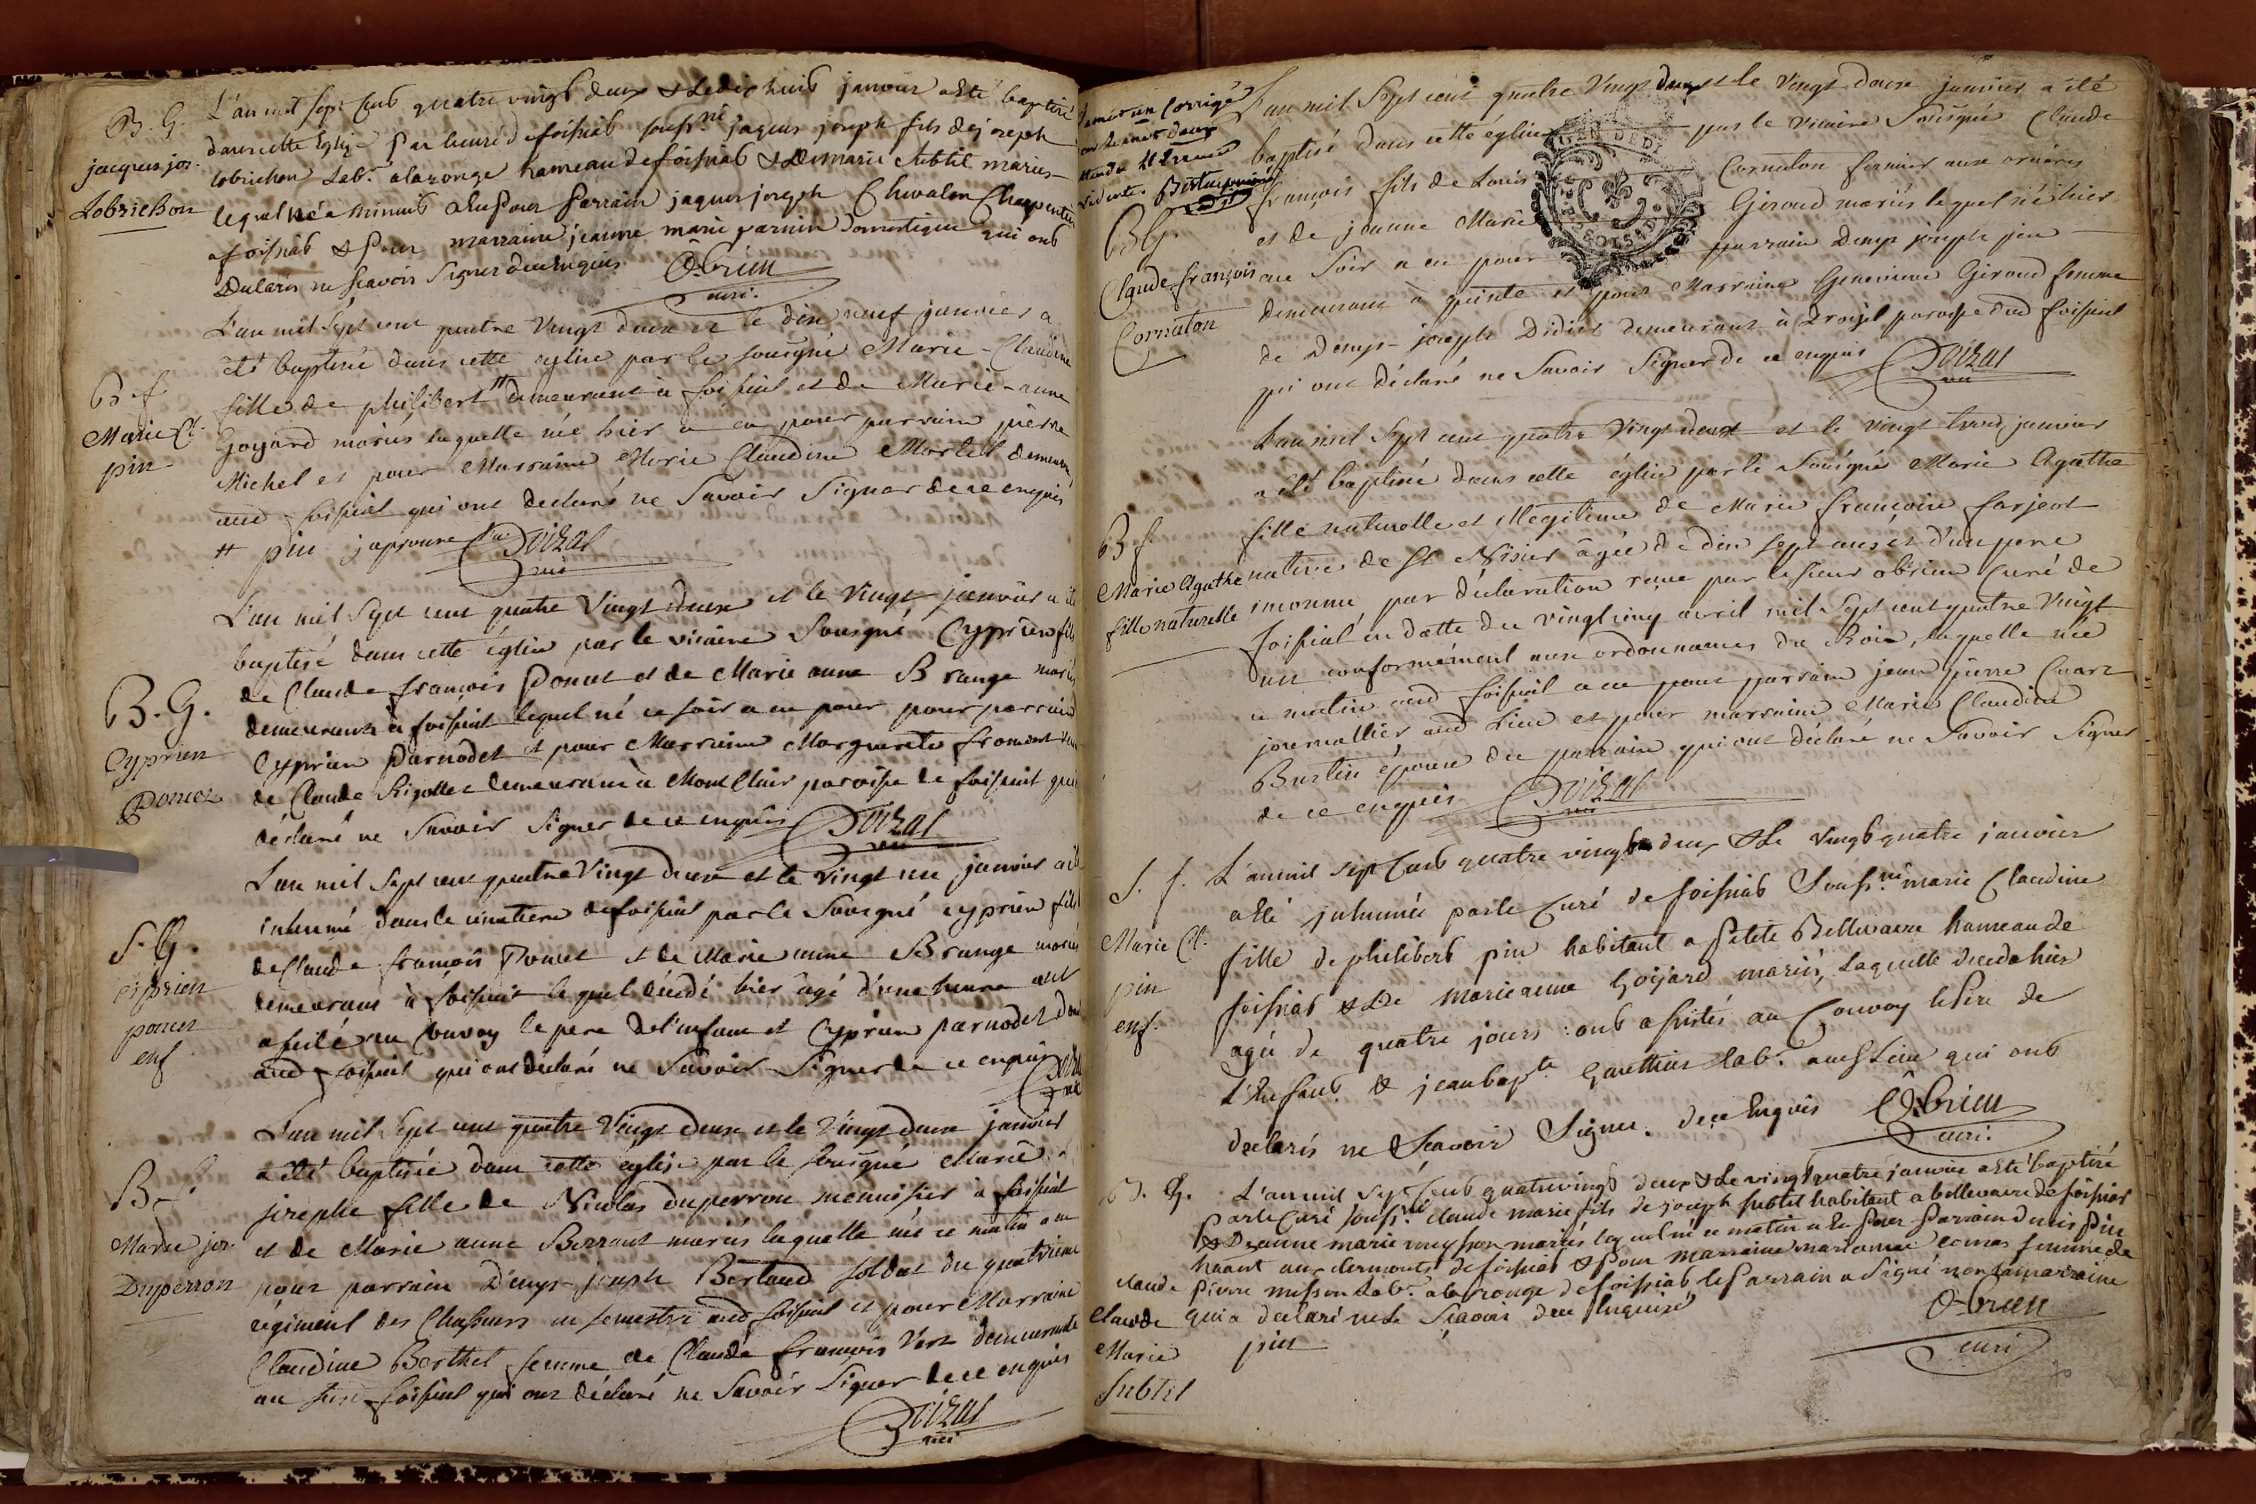 B. G.
jacques jos.
Lobrichon
L'an mil sept cent quatre vingt deux & le dix huit janvier a été baptisé
dans cette Eglise par le curé de foissiat souss.né jaques joseph fils de joseph
Lobrichon Lab.r a la ronge hameau de foissiat & de marie subtil mariés
lequel né a minuit a eu pour parrain jaques joseph Chevalon Charpentier
a foissiat & pour marraine jeanne marie parnin domestique qui ont
declarés ne scavoir signer de ce enquis Obrien
curé.
B f
Marie Cl.
pin
L'an mil sept cent quatre vingt deux et le dix neuf janvier a
été baptisée dans cette église par le sousigné Marie-Claudine
fille de philibert # demeurant à foissiat et de Marie-anne
Goyard mariés laquelle née hier a eu pour parrain pierre
Michel et pour Marraine Marie Claudine Martell demeurant
aud foissiat qui ont déclaré ne Savoir Signer de ce enquis
# pin japrouve Doizat
vic
B. G.
Cyprien
Poncet
L'an mil sept cent quatre vingt deux et le vingt janvier a été
baptisé dans cette église par le vicaire Sousigné Cyprien fils
de Claude françois Poncet et de Marie anne Brange mariés
demeurants à foissiat lequel né ce soir a eu pour pour parrain
Cyprien Parnodet et pour Marraine Marguerite froment
de Claude Rigollet demeurant à Mont Clair paroisse de foissiat qui
déclaré ne Savoir Signer de ce enquis Doizat
vic
S. G.
ciprien
poncet
enf
L'an mil sept cent quatre vingt deux et le vingt un janvier a été
inhumé dans le cimetiere de foissiat par le Sousigné cyprien fils
de Claude françois Poncet et de Marie anne Brange mariés
demeurans à foissiat lequel décédé hier âgé d'une heure ont
assisté au Convoy le pere de l'enfant et Cyprien parnodet
aud foissiat qui ont déclaré ne Savoir Signer de ce enquis Doizat
vic
B f
Marie jos.
Duperron
L'an mil sept cent quatre vingt deux et le vingt deux janvier
a été baptisée dans cette église par le sousigné Marie
josephe fille de Nicolas duperron menuisier à foissiat
et de Marie anne Berrant mariés laquelle née ce matin a eu
pour parrain Denys-joseph Bertaud soldat du quatrieme
régiment des Chasseurs en semestre aud foissiat et pour Marraine
Claudine Berthet femme de Claude françois Vert demeurante
au dit foissiat qui ont déclaré ne Savoir Signer de ce enquis
Doizat
vic
B G.
Claude françois
Cornaton
L'an mil sept cent quatre vingt deux et le vingt deux janvier a été
baptisé dans cette église par le vicaire Sousigné Claude
françois fils de Louis Cornaton fermier aux ornéres
et de jeanne Marie Giroud mariés lequel né hier
au Soir a eu pour parrain Denys joseph pin
demeurant à et pour Marraine Genevieve Giroud femme
de Denys-joseph Didier demeurant à paroisse dud foissiat
qui ont déclaré ne Savoir Signer de ce enquis Doizat
vic
B f
Marie Agathe
fille naturelle
L'an mil sept cent quatre vingt deux et le vingt trois janvier
a été baptisée dans cette église par le Sousigné Marie Agathe
fille naturelle et illegitime de Marie françoise farjeot
native de St Nisier âgée de dix sept ans et d'un pere
inconnu, par déclaration reçue par le sieur obrien Curé de
foissiat en datte du vingt cinq avril mil sept cent quatre vingt
un conformément aux ordonnances du Roi, laquelle née
ce matin aud foissiat a eu pour parrain jean pierre Cuaz
journallier aud lieu et pour marraine Marie Claudine
Burtin épouse du parrain qui ont déclaré ne Savoir Signer
de ce enquis Doizat
vic
S. f.
Marie Cl.
pin
enf.
L'an mil sept Cent quatre vingt deux & Le vingt quatre janvier
a été inhumée par le Curé de foissiat Souss.né marie Claudine
fille de philibert pin habitant a petite Bellevavre hameau de
foissiat & de marie anne Goyard mariés, Laquelle decedée hier
agée de quatre jours : ont assistés au Convoy le Pere de
l'Enfant & jean bap.te Gauthier Lab.r aud Lieu qui ont
declarés ne Scavoir Signer. de ce Enquis Obrien
curé.
B. G.
claude
Claude
Marie
subtil
L'an mil sept Cent quatre vingt deux & Le vingt quatre janvier a été baptisé
par le Curé souss.né claude marie fils de joseph subtil habitant a bellevavre de foissiat
& De anne marie moyson mariés lequel né ce matin a Eu pour parrain denis pin
aux clermonts de foissiat & pour marraine marianne comas femme de
pierre misson Lab.r a la ronge de foissiat, le Parrain a Signé non la marraine
qui a declaré ne le Scavoir de ce Enquise Obrien
pin
curé